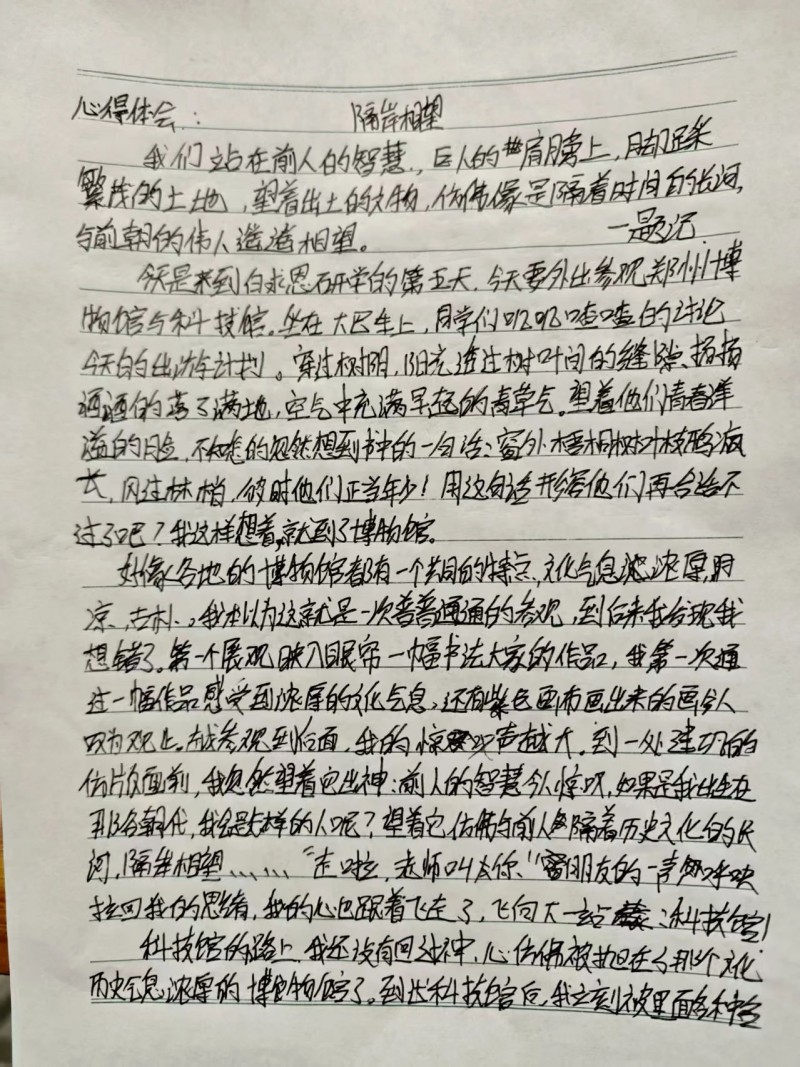 心得体会： 隔岸相望
我们站在前人的智慧，巨人的肩膀上，脚踩
繁茂的土地，望着出土的文物，仿佛像是隔着时间的长河，
与前朝的伟人遥遥相望。 —题记
今天是来到白求恩研学的第五天，今天要外出参观郑州博
物馆与科技馆。坐在大巴车上，同学们叽叽喳喳的讨论
今天的出游计划。穿过树阴，阳光透过树叶间的缝隙、扬扬
洒洒的落了满地，空气中充满早起的青草气。望着他们青春洋
溢的脸，不知怎的忽然想到书中的一句话：窗外梧桐树叶枝鸦疯
长，风过林梢，彼时他们正当年少！用这句话形容他们再合适不
过了吧？我这样想着，就到了博物馆。
好像各地的博物馆都有一个共同的特点，文化气息浓厚，阴
凉，古朴。我本以为这就是一次普普通通的参观，到后来我发现我
想错了。第一个展观映入眼帘一幅书法大家的作品，我第一次通
过一幅作品感受到浓厚的文化气息，还有紫色画布画出来的画令人
叹为观止。越参观到后面，我的惊叹声越大。到一处建功的
仿版面前，我忽然望着它出神：前人的智慧令人惊叹，如果是我出生在
那各朝代，我会是怎样的人呢？望着它仿佛与前人隔着历史文化的长
河，隔岸相望、、、、、、“走啦，老师叫友你、”朋友的一声呼唤
拉回我的思绪，我的心也跟着飞走了，飞向下一站：科技馆！
科技馆的路上，我还没有回过神，心仿佛被拽在了那个文化
历史气息浓厚的博物馆了。到达科技馆后，我立刻被里面各种会